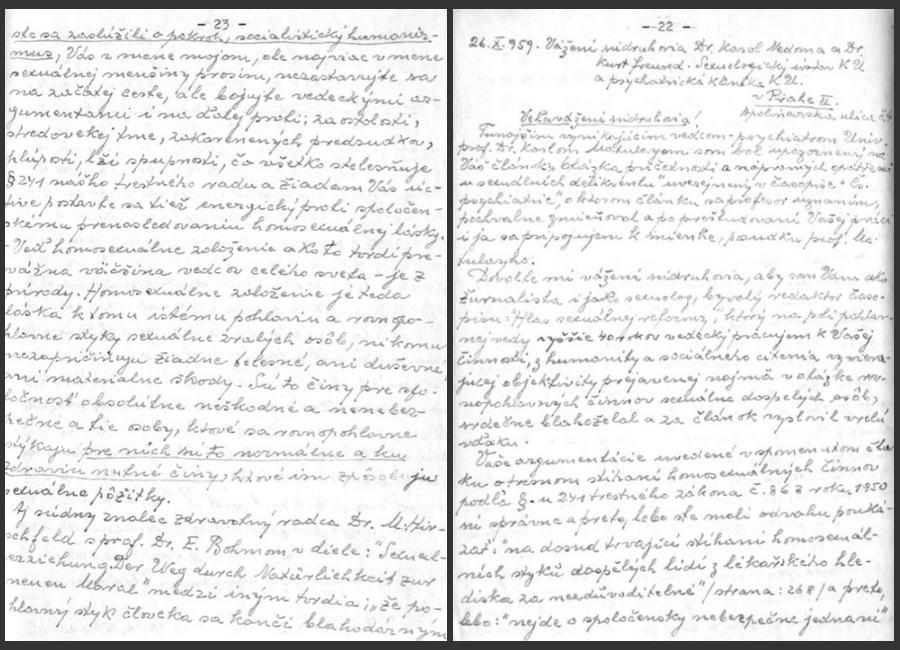 - 23 -
ste sa zaslúžili o pokrok, socialistický humaniz-
mus, Vás v mene mojom, ale najviac v mene
sexuálnej menšiny prosím, nezastavujte sa
na začatej ceste, ale bojujte vedeckými ar-
gumentami i na ďalej proti: zaostalosti,
stredovekej tme, zakorenených predsudkov,
hlúposti, lži spupnosti, čo všetko stelesňuje
§ 241 nášho trestného radu a žiadam Vás úc-
tive postavte sa tiež energický proti spoločen-
skému prenasledovaniu homosexuálnej lásky.
- Veď homosexuálne založenie ako to tvrdí pre-
vážna väčšina vedcov celého sveta - je z
prírody. Homosexuálne založenie je teda
láska k tomu istému pohlaviu a rovnopo-
hlavné styky sexuálne zralých osôb, nikomu
nezapríčiňujú žiadne telesné, ani duševné
ani materialne škody. Sú to činy pre spo-
ločnosť absolútne neškodné a nenebez-
pečné a tie osoby, ktoré sa rovnopohlavne
stýkajú pre nich sú to normálne a ku
zdraviu nutné činy, ktoré im spôsobujú
sexuálne pôžitky.
Aj súdny znalec zdravotný radca Dr. M. Hir-
schfeld s prof. Dr. E. Bohmom v diele: "Sexual-
erziehung Der Weg durch Natürlichkeit zur
neuen Moral" medzi iným tvrdia: "že po-
hlavný styk človeka sa končí blahodárným
- 22 -
26. X. 959. Vážení súdruhovia Dr. Karol Nedoma a Dr.
Kurt Freund. Sexuologický ústav K U
a psychiatrická klinika K. U.
v Prahe II.
Apolinárska ulica č. 4
Veľavážení súdruhovia!
Tunajším vynikajúcim vedcom - psychiatrom Univ.
prof. Dr. Karlom Matulayom som bol upozornený na
Váš článok: otázka príčetnosti a nápravných opatření
u sexuálních delikventů" uverejnený v časopise "Čs.
psychiatrie", o ktorom článku sa profesor uznaním,
pochvalne zmieňoval a po preštudovaní Vašej práci
i ja sa pripojujem k mienke, posudku prof. Ma-
tulayho.
Dovoľte mi vážení súdruhovia, aby som Vám ako
žurnalista i jako sexuolog, bývalý redaktor časo-
pisu "Hlas sexuálnej reformy," ktorý na poli pohlav-
nej vedy vyššie 40 rokov vedecký pracujem k Vašej
činnosti, z humanity a sociálneho cítenia vyviera-
júcej objektivity prejavenej najmä v otázke rov-
nopohlavných činnov sexuálne dospelých osôb,
srdečne blahoželal a za článok vyslovil vrelú
vďaku.
Vaše argumentácie uvedené v spomenutom člán-
ku o trestnom stíhaní homosexuálných činnov
podľa §-u 241 trestného zákona č. 86 z roku 1950
sú správne a preto, lebo ste mali odvahu pouká-
zať: "na dosud trvající stíhaní homosexuál-
ních styků dospělých lidí z lékařského hle-
diska za nezdůvoditelné" / strana: 268 / a preto,
lebo: "nejde o spoločensky nebezpečné jednaní"